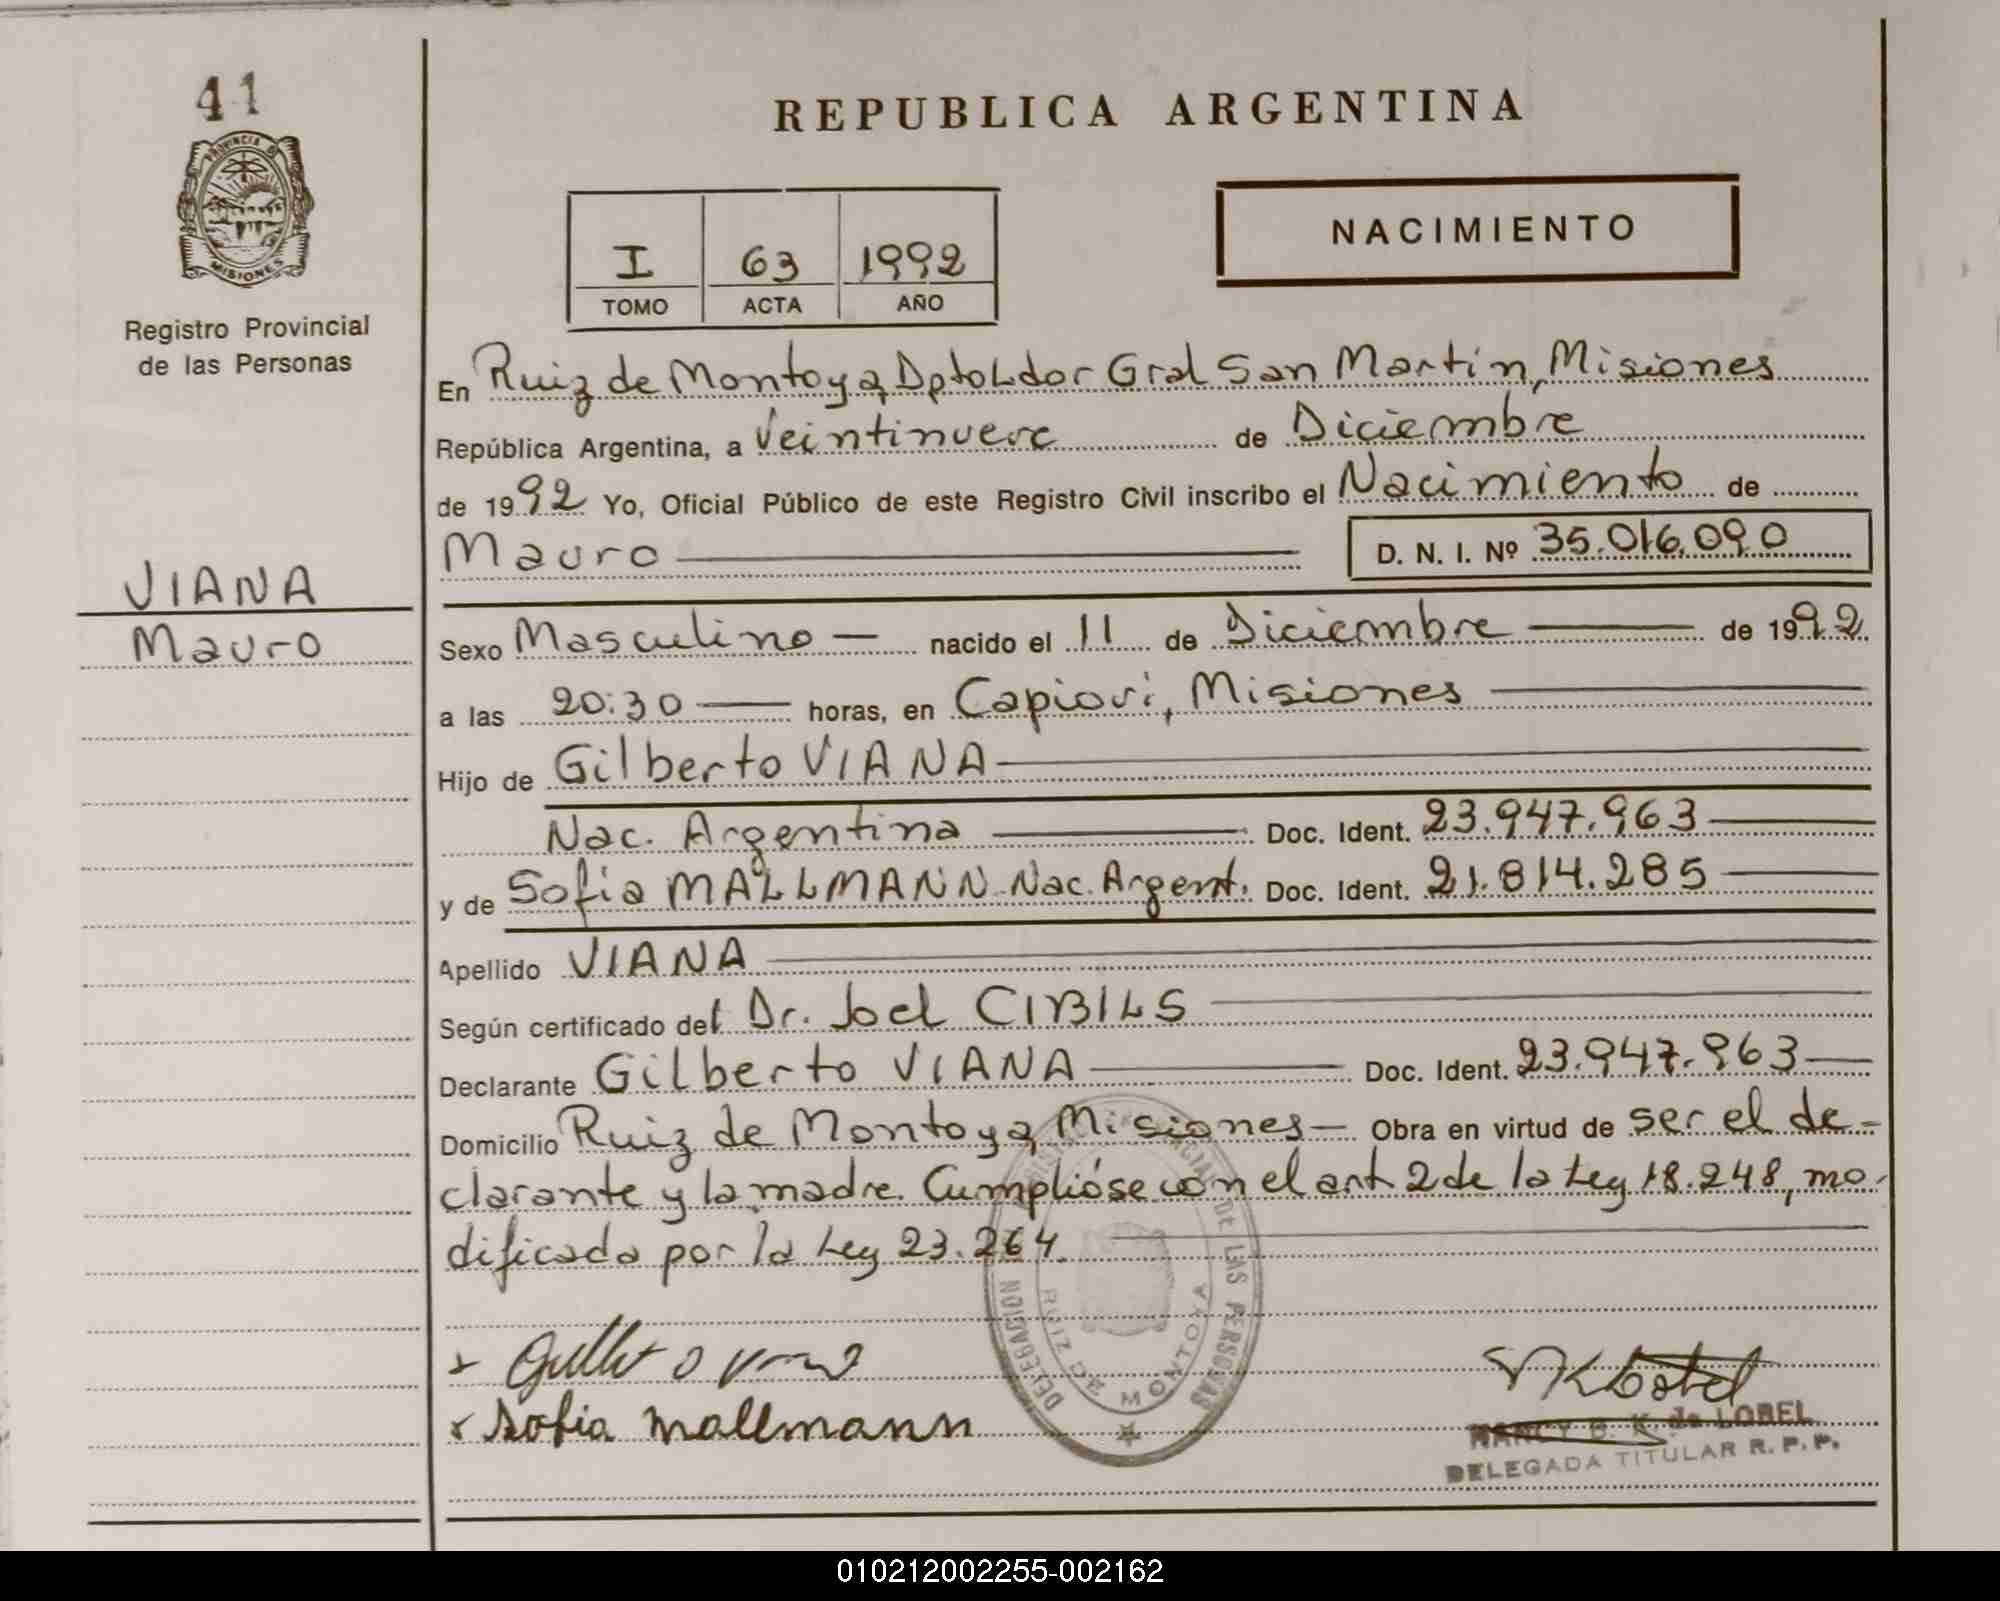 41
PROVINCIA DE
MISIONES
Registro Provincial
de las Personas
VIANA
Mauro
REPUBLICA ARGENTINA
NACIMIENTO
I 63 1992
TOMO ACTA AÑO
En Ruiz de Montoya Dpto Ldor Gral San Martín, Misiones
República Argentina, a Veintinueve de Diciembre
de 1992 Yo, Oficial Público de este Registro Civil inscribo el Nacimiento de
Mauro D. N. I. Nº 35.016.090
Sexo Masculino — nacido el 11 de Diciembre — de 1992
a las 20:30 — horas, en Capioví, Misiones
Hijo de Gilberto VIANA
Nac. Argentina — Doc. Ident. 23.947.963
y de Sofia MALLMANN Nac. Argent. Doc. Ident. 21.814.285
Apellido VIANA
Según certificado del Dr. Joel CIBILS
Declarante Gilberto VIANA — Doc. Ident. 23.947.963
Domicilio Ruiz de Montoya, Misiones — Obra en virtud de ser el de-
clarante y la madre. Cumplióse con el art 2 de la Ley 18.248, mo-
dificada por la Ley 23.264.
DELEGACION DE LAS PERSONAS
RUIZ DE MONTOYA
Sofia Mallmann
NANCY B. K. de LOBEL
DELEGADA TITULAR R. P. P.
010212002255-002162